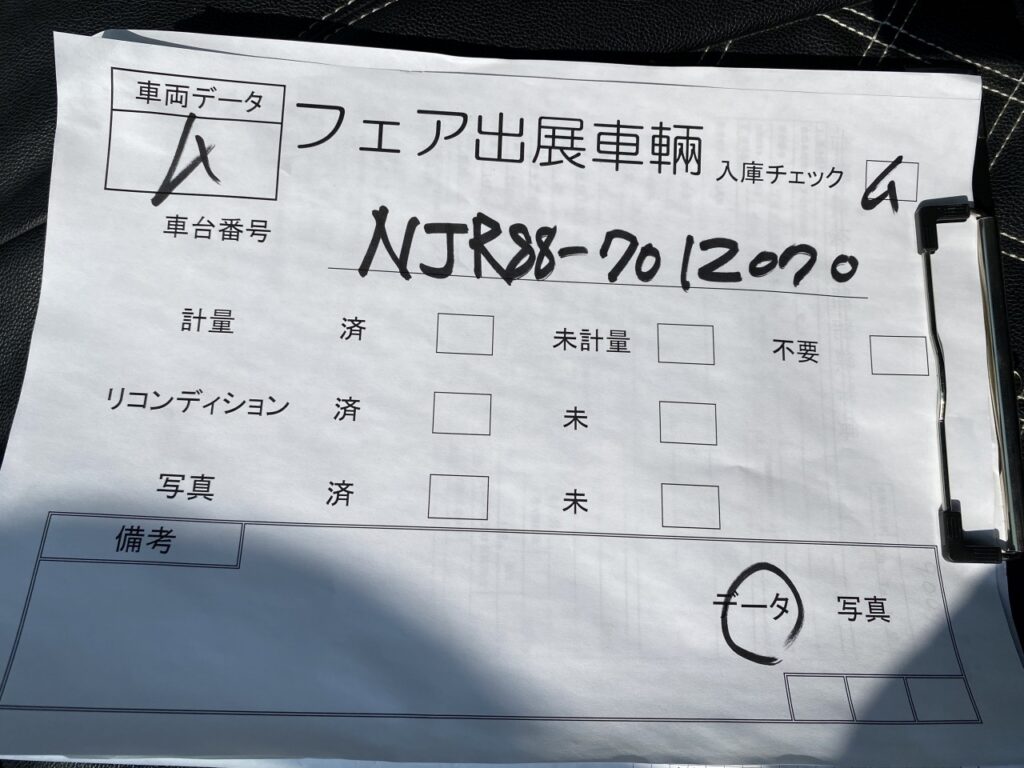 車両データ
ム
フェア出展車輌
入庫チェック
ム
車台番号
NJR88-7012070
計量 済 未計量 不要
リコンディション 済 未
写真 済 未
備考
データ 写真